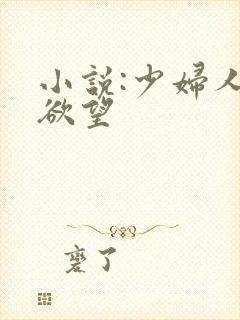 小説:少婦人
欲望
了